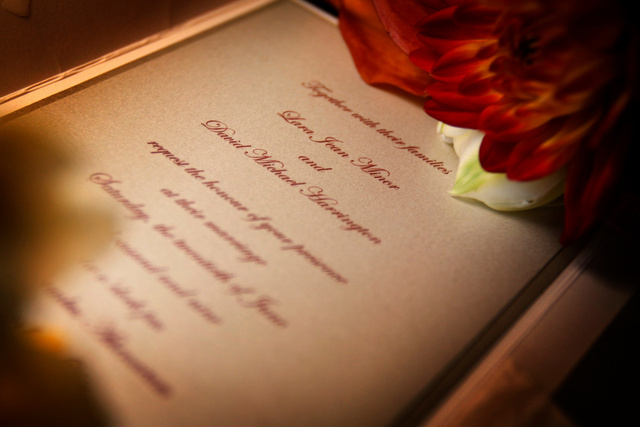 Together with their families
Lara Jean Minor
and
David Michael Harrington
request the honour of your presence
at their marriage
Saturday, the twentieth of June
thousand and nine